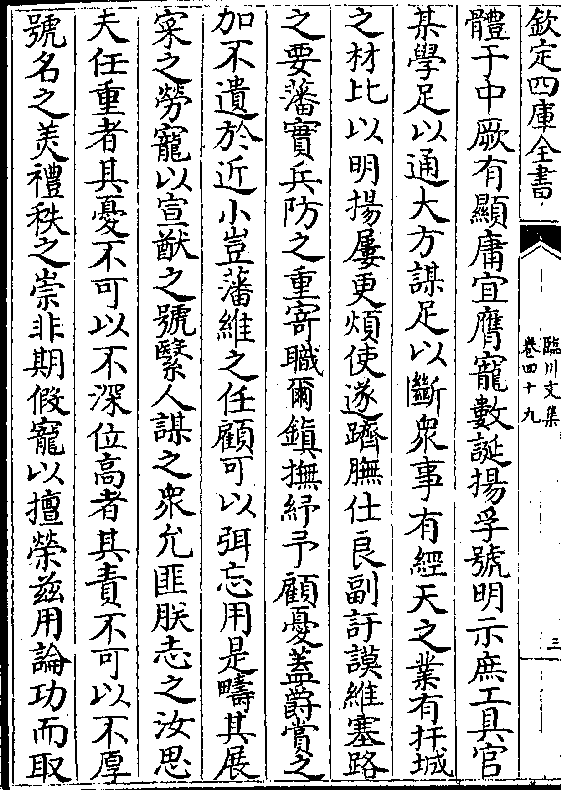 欽定四庫全書
臨川文集
卷四十九
三
體于中厥有顯庸宜膺寵數誕揚孚號明示庶工具官
某學足以通大方謀足以斷衆事有經天之業有扞城
之材比以明揚屢更煩使遂躋膴仕良副訏謨維塞路
之要藩實兵防之重寄職爾鎮撫紓予顧憂蓋爵賞之
加不遺於近小豈藩維之任顧可以弭忘用是疇其展
寀之勞寵以宣猷之號繄人謀之衆允匪朕志之汝思
夫任重者其憂不可以不深位高者其責不可以不厚
號名之美禮秩之崇非期假寵以擅榮茲用論功而取